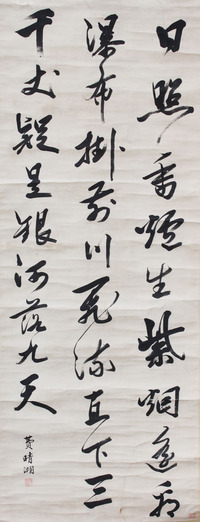 日照香爐生紫烟遥看
瀑布掛前川飛流直下三
千丈疑是銀河落九天
費晴湖